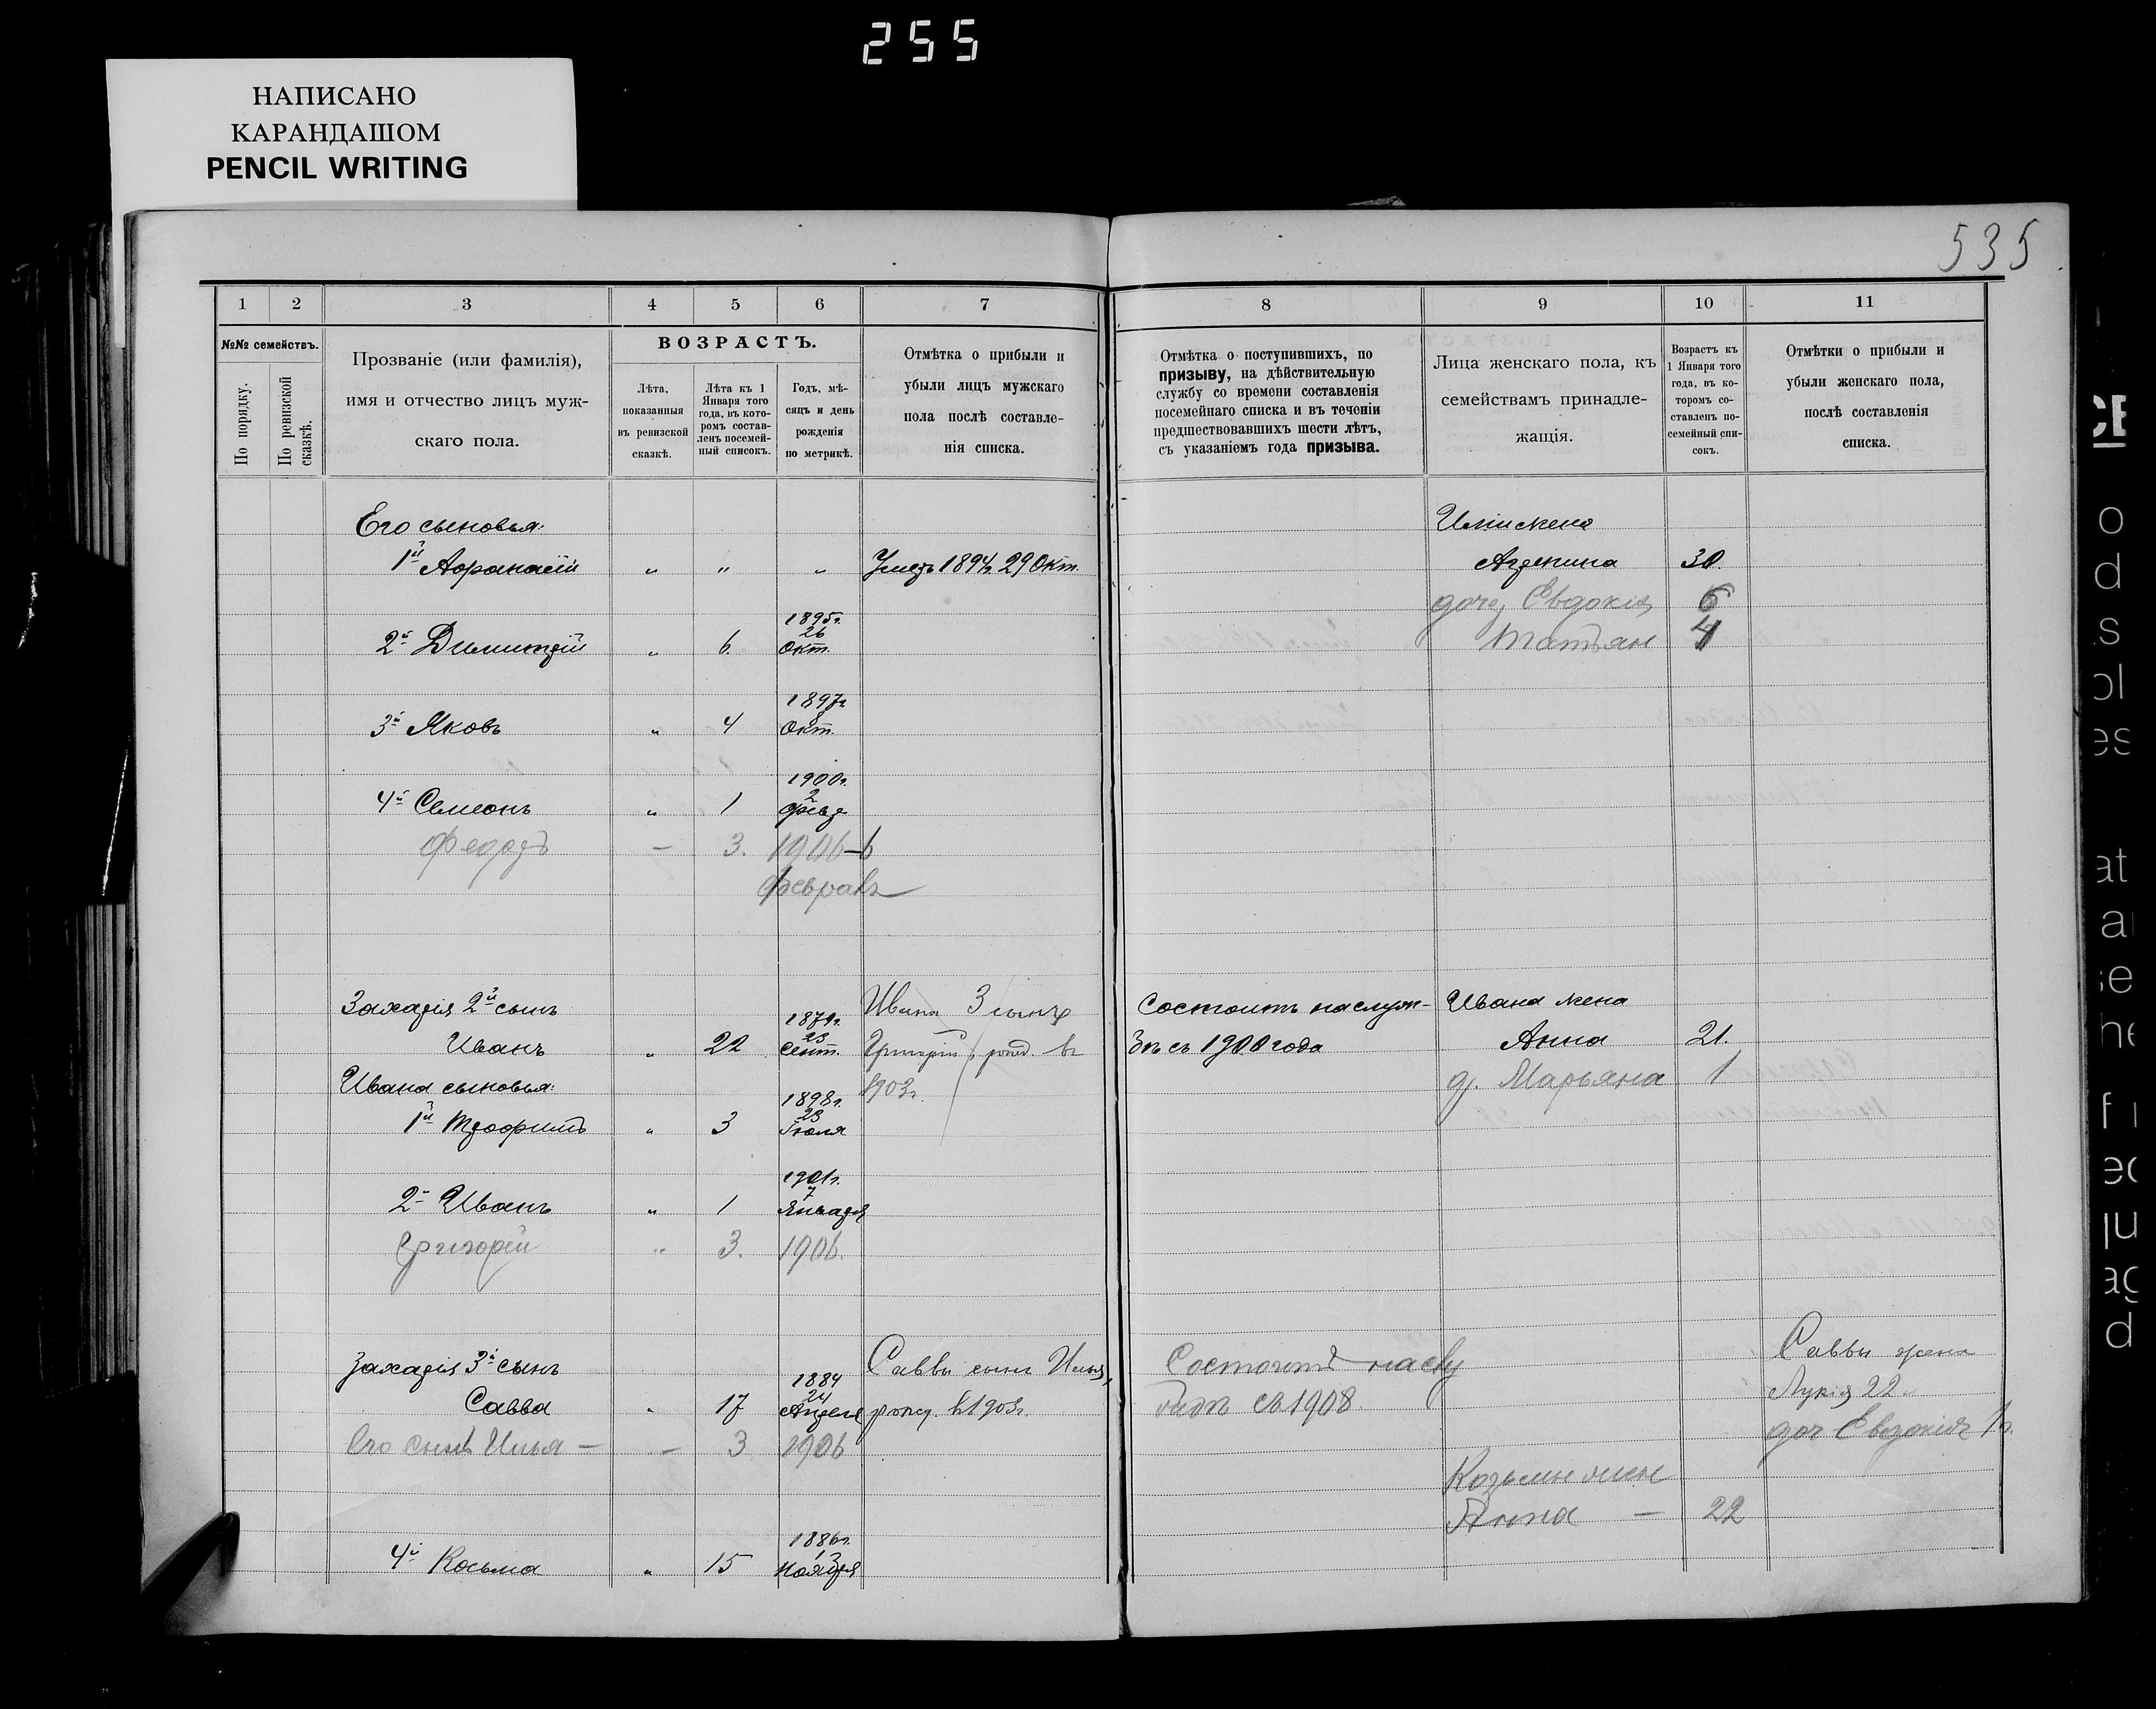 255
НАПИСАНО
КАРАНДАШОМ
PENCIL WRITING
535
1 2 3 4 5 6 7 8 9 10 11
№№ семействъ.
По порядку.
По ревизской сказкѣ.
Прозваніе (или фамилія),
имя и отчество лицъ муж-
скаго пола.
ВОЗРАСТЪ.
Лѣта,
показанныя
въ ревизской
сказкѣ.
Лѣта къ 1
Января того
года, въ кото-
ромъ состав-
ленъ посемей-
ный списокъ.
Годъ, мѣ-
сяцъ и день
рожденія
по метрикѣ.
Отмѣтка о прибыли и
убыли лицъ мужскаго
пола послѣ составле-
нія списка.
Отмѣтка о поступившихъ, по
призыву, на дѣйствительную
службу со времени составленія
посемейнаго списка и въ теченіи
предшествовавшихъ шести лѣтъ,
съ указаніемъ года призыва.
Лица женскаго пола, къ
семействамъ принадле-
жащія.
Возрастъ къ
1 Января того
года, въ ко-
торомъ со-
ставленъ по-
семейный спи-
сокъ.
Отмѣтки о прибыли и
убыли женскаго пола,
послѣ составленія
списка.
Его сыновья:
жена
1й Афанасій " " " 1894г. 29 Окт.
30.
доч Евдокія 6
1895г.
26
2й Димитрій " 6. Окт.
Татьян 4
1897г
8
3й Яковъ " 4 Окт.
1900г.
2
4й Семеонъ " 1 Февр
Федоръ — 3. 1906-6
Февраль
Захарія 2й сынъ
Ивана 3 сынъ
Состоитъ на служ-
Ивана жена
1879г.
23
Иванъ " 22 Сент.
Григорій, рожд. въ
бѣ съ 1900 года
Анна 21.
Ивана сыновья:
1903г.
д. Марьяна 1
1898г.
23
1й Трофимъ " 3 Іюля
1901г.
7
2й Иванъ " 1 Января
Григорій " 3. 1906.
Захарія 3й сынъ
Саввы сынъ Илья,
Состоитъ на слу
Саввы жена
1884
24
Савва " 17 Апреля
рожд. в 1903г.
съ 1908.
Лукія 22
Его сынъ Илья — — 3 1906
доч Евдокія 1г.
Козьмы жен
Анна — 22
1886г.
13
4й Косьма " 15 Ноября